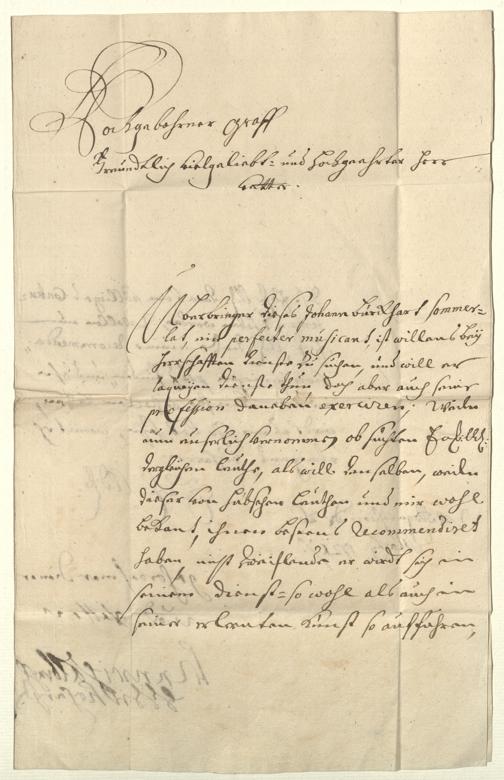 Hochgebohrner Graff
Freundtlich vielgeliebt- und hochgeehrter Herr
Vatter.
Überbringer dieses Johann Burkhart Sommer-
lat, ein perfecter musicant, ist willens bey
Herrschafften dienste zu suchen, und will er
laqueyen dienste thun doch aber auch seine
profession daneben exerciren; Weilen
nun euserlich vernommen ob suchten Excell:
dergleichen leuthe, als will denselben, weilen
dieser von hübschen leuthen und mir wohl
bekant, ihnen bestens recommendiret
haben, nicht zweifflende er wirdt sich in
seinem dienst- so wohl als auch in
seiner erlernten Kunst so auffführen,